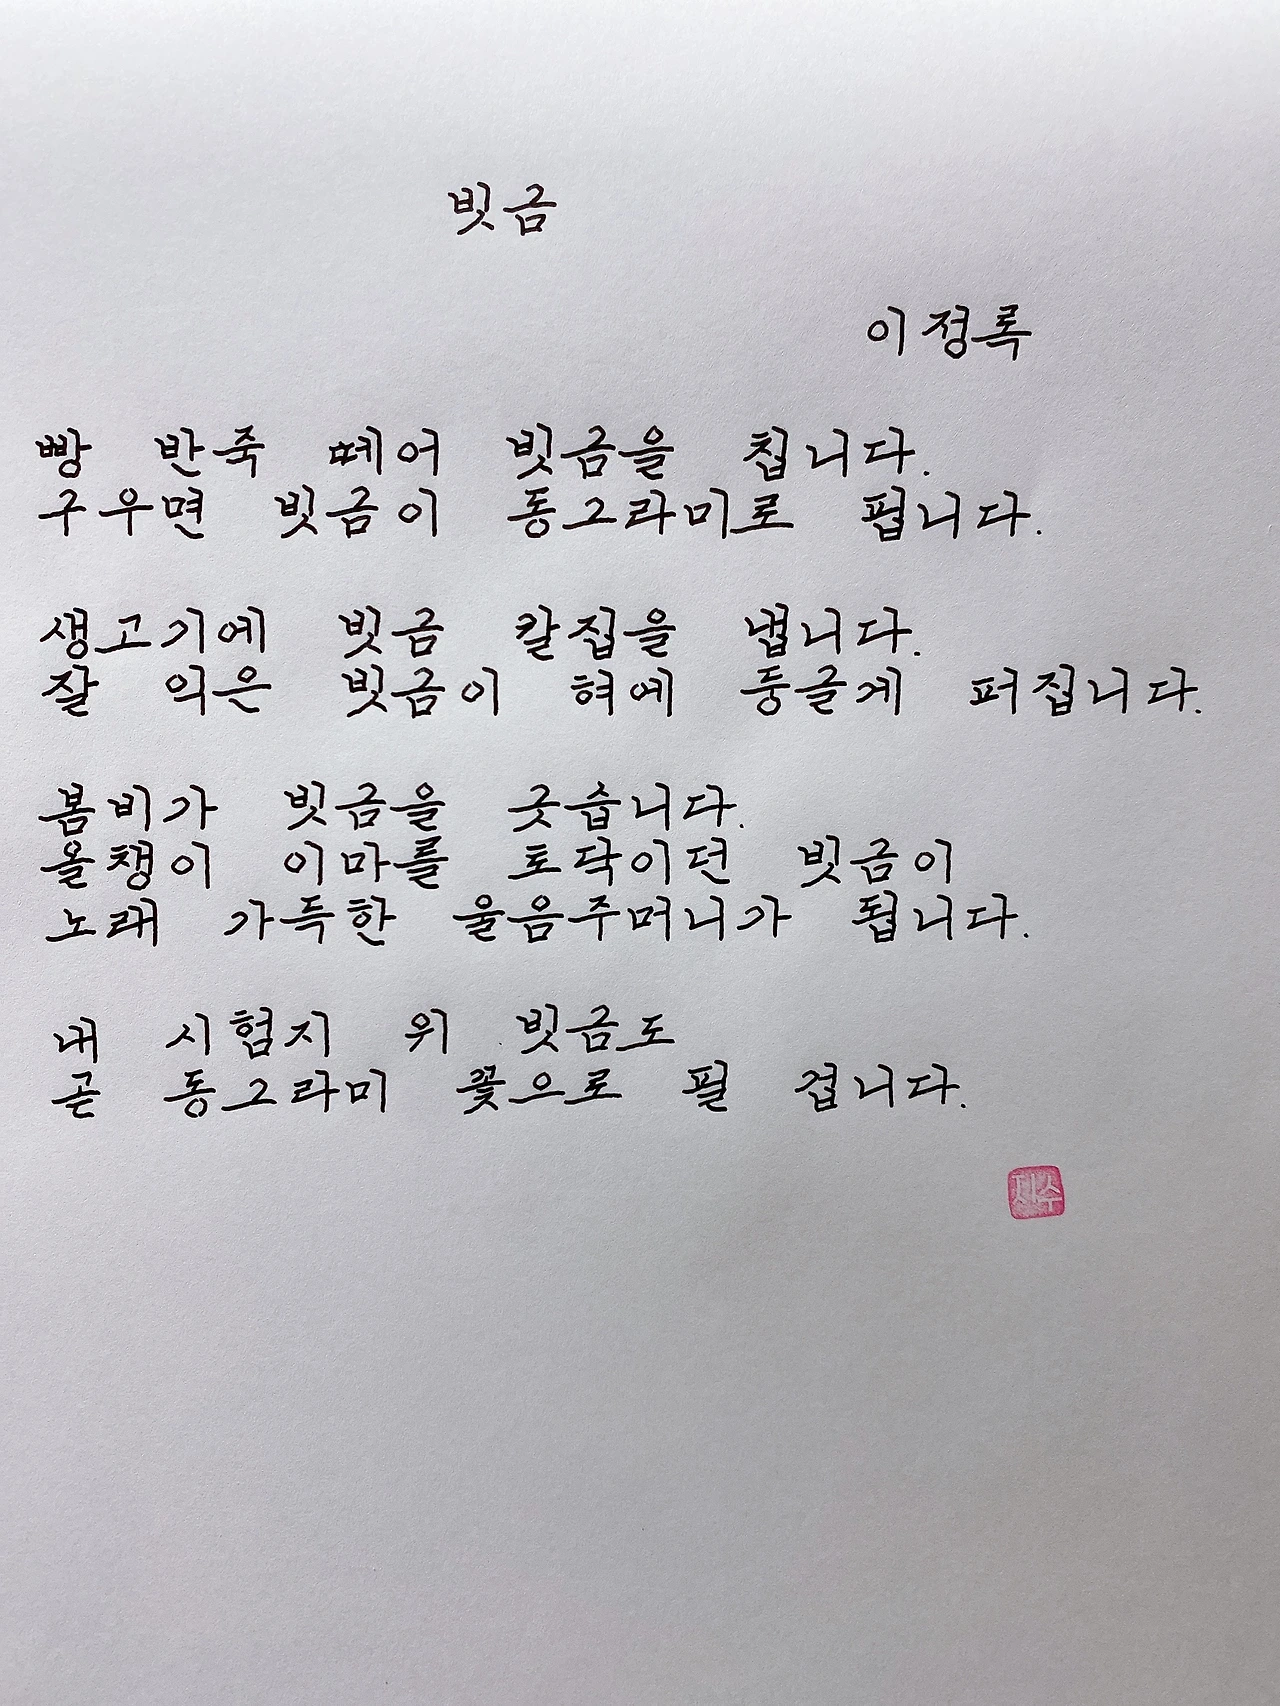 빗금
이정록
빵 반죽 떼어 빗금을 칩니다.
구우면 빗금이 동그라미로 핍니다.
생고기에 빗금 칼집을 냅니다.
잘 익은 빗금이 혀에 둥글게 퍼집니다.
봄비가 빗금을 긋습니다.
올챙이 이마를 토닥이던 빗금이
노래 가득한 울음주머니가 됩니다.
내 시험지 위 빗금도
곧 동그라미 꽃으로 필 겁니다.